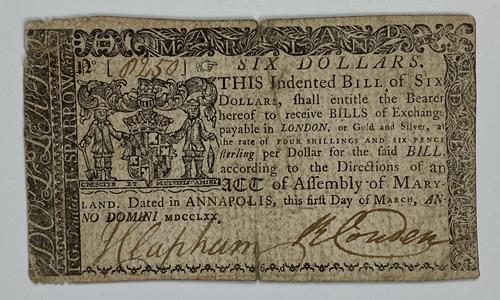 MARYLAND
Nº [8250] ☞ SIX DOLLARS.
THIS Indented BILL of SIX
DOLLARS, shall entitle the Bearer
hereof to receive BILLS of Exchange
payable in LONDON, or Gold and Silver, at
the rate of FOUR SHILLINGS AND SIX PENCE
sterling per Dollar for the said BILL,
according to the Directions of an
CRESCITE ET MULTIPLICAMINI
ACT of Assembly of MARY-
LAND. Dated in ANNAPOLIS, this first Day of MARCH, AN-
NO DOMINI MDCCLXX.
J Clapham R Couden
SPARROW
F.G.